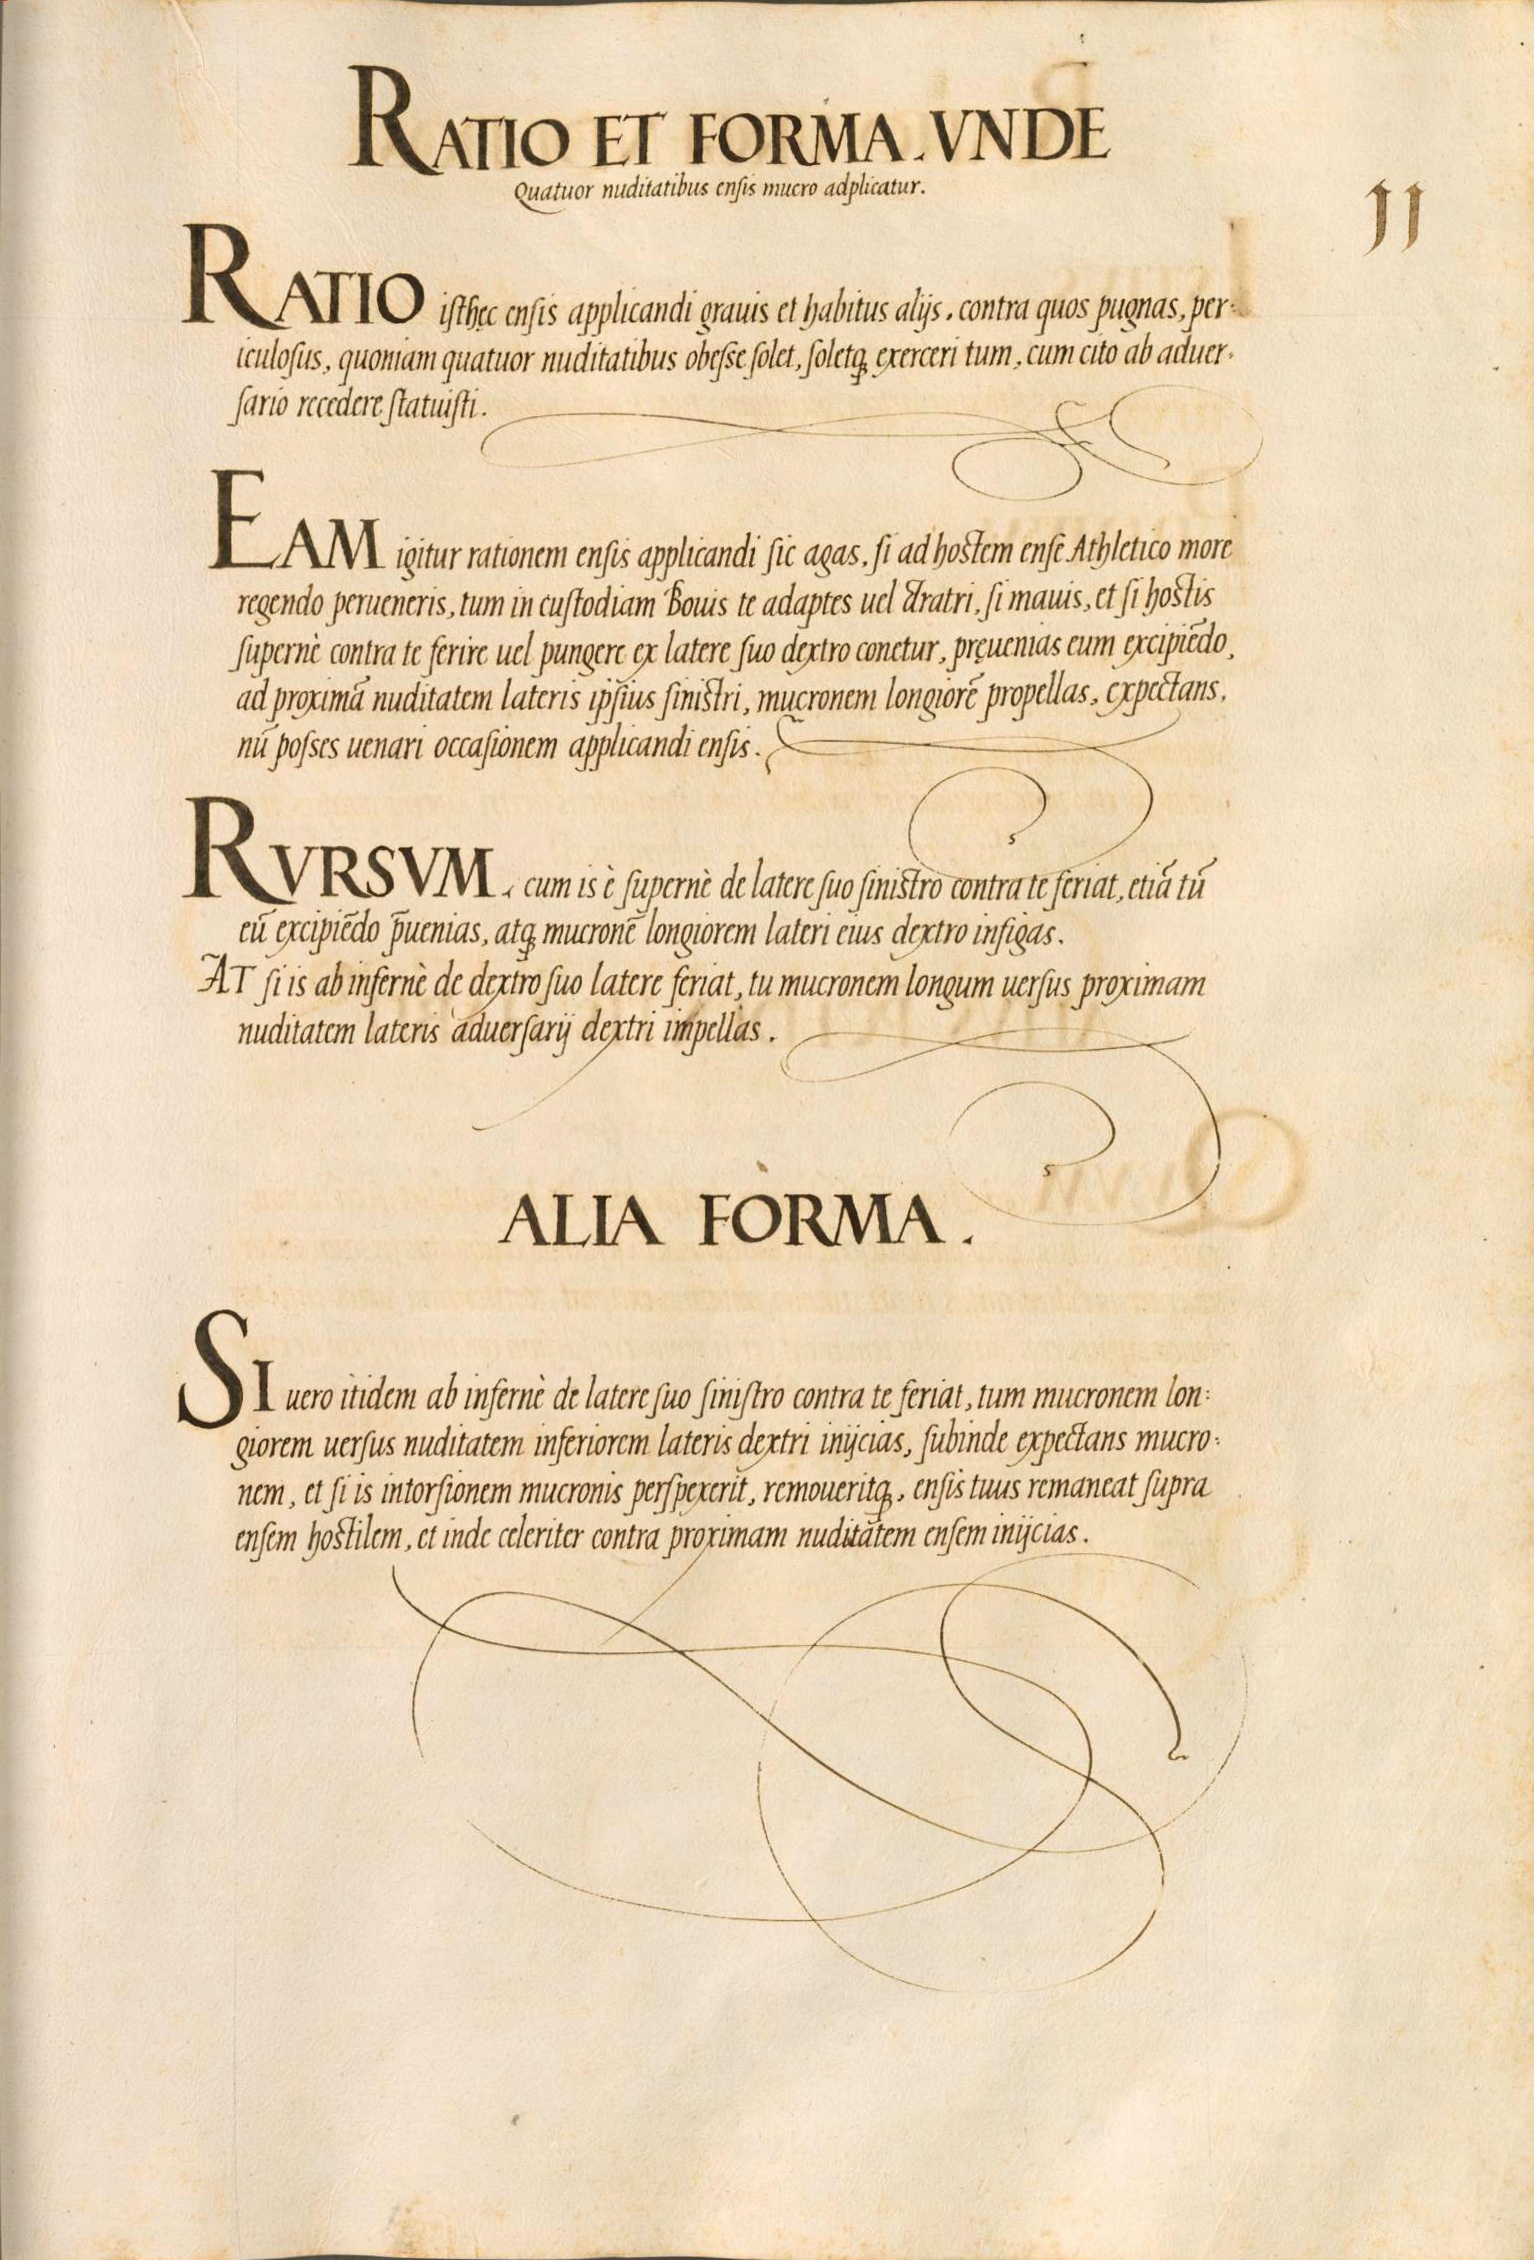 RATIO ET FORMA. VNDE
Quatuor nuditatibus ensis mucro adplicatur.
11
RATIO isthęc ensis applicandi grauis et habitus alijs, contra quos pugnas, per:
iculosus, quoniam quatuor nuditatibus obesse solet, soletq; exerceri tum, cum cito ab aduer:
sario recedere statuisti.
EAM igitur rationem ensis applicandi sic agas, si ad hostem ense Athletico more
regendo perueneris, tum in custodiam Bouis te adaptes uel Aratri, si mauis, et si hostis
supernè contra te ferire uel pungere ex latere suo dextro conetur, pręuenias eum excipiẽdo,
ad proximã nuditatem lateris ipsius sinistri, mucronem longiorẽ propellas, expectans,
nũ posses uenari occasionem applicandi ensis.
RVRSVM, cum is è supernè de latere suo sinistro contra te feriat, etiã tũ
eũ excipiẽdo p̃uenias, atq; mucronẽ longiorem lateri eius dextro infigas.
AT si is ab infernè de dextro suo latere feriat, tu mucronem longum uersus proximam
nuditatem lateris aduersarij dextri impellas.
ALIA FORMA.
SI uero itidem ab infernè de latere suo sinistro contra te feriat, tum mucronem lon:
giorem uersus nuditatem inferiorem lateris dextri inijcias, subinde expectans mucro:
nem, et si is intorsionem mucronis perspexerit, remoueritq;, ensis tuus remaneat supra
ensem hostilem, et inde celeriter contra proximam nuditatem ensem inijcias.